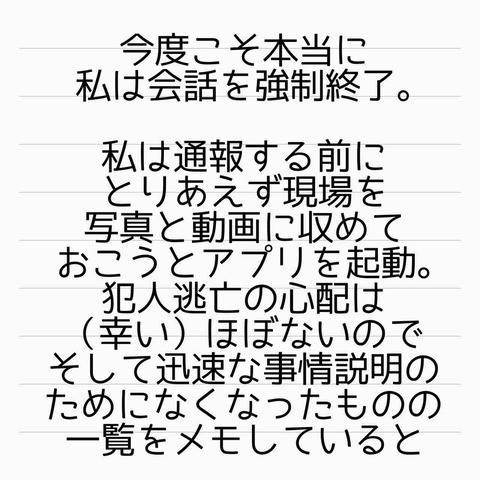 今度こそ本当に
私は会話を強制終了。
私は通報する前に
とりあえず現場を
写真と動画に収めて
おこうとアプリを起動。
犯人逃亡の心配は
（幸い）ほぼないので
そして迅速な事情説明の
ためになくなったものの
一覧をメモしていると